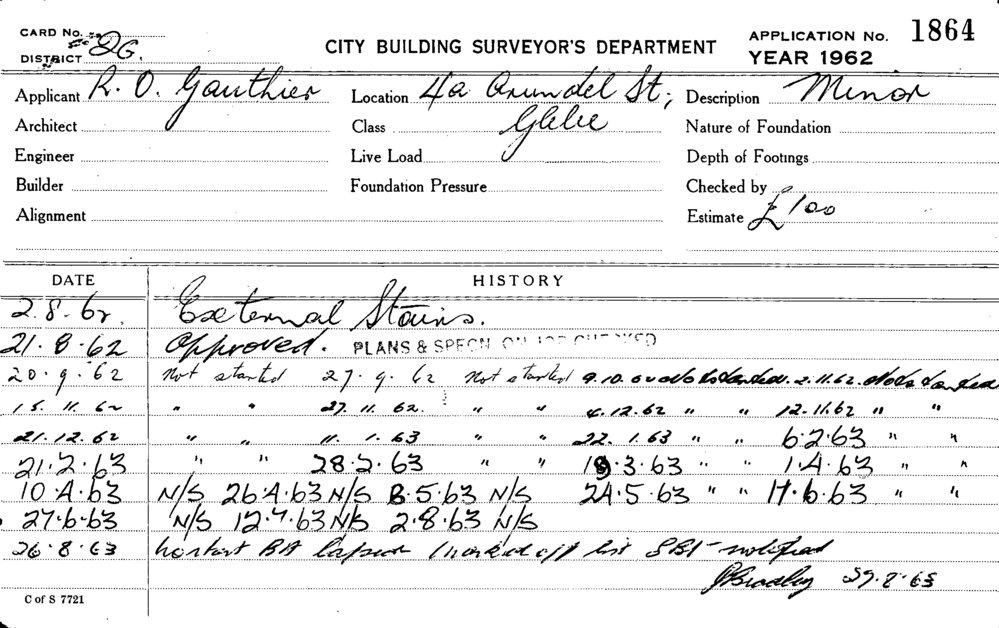 CARD No.
DISTRICT 2G.
CITY BUILDING SURVEYOR'S DEPARTMENT
APPLICATION No. 1864
YEAR 1962
Applicant R. O. Gauthier Location 4a Arundel St; Description Minor
Architect Class Glebe Nature of Foundation
Engineer Live Load Depth of Footings
Builder Foundation Pressure Checked by
Alignment Estimate £100
DATE HISTORY
2.8.62. External Stairs.
21.8.62 Approved. PLANS & SPECN ON JOB CHECKED
20.9.62 Not started 27.9.62 Not started 9.10.62 Not started. 2.11.62. Not started
15.11.62 " " 27.11.62. " " 4.12.62 " " 12.11.62 " "
21.12.62 " " 11.1.63 " " 22.1.63 " " 6.2.63 " "
21.2.63 " " 28.2.63 " " 19.3.63 " " 1.4.63 " "
10.4.63 N/S 26.4.63 N/S 8.5.63 N/S 24.5.63 " " 17.6.63 " "
27.6.63 N/S 12.7.63 N/S 2.8.63 N/S
26.8.63 no start BA lapsed marked off list SBI notified
JBradley 29.8.63
C of S 7721